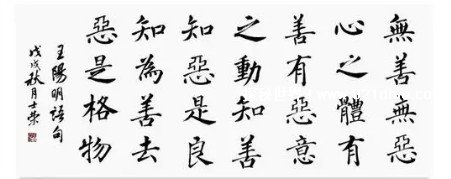 無善無惡
心之體有
善有惡意
之動知善
知惡是良
知為善去
惡是格物
王陽明語句
戊戌秋月士榮